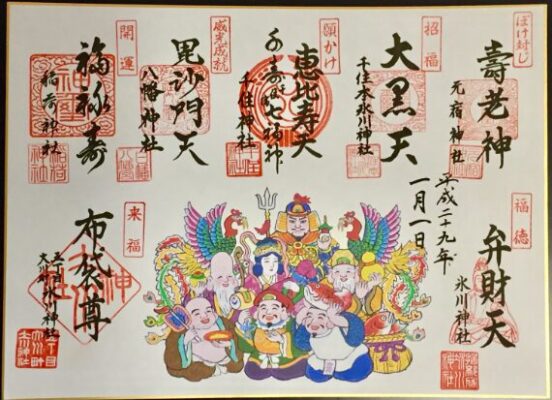 ぼけ封じ
壽老神
元宿神社
招福
大黒天
千住本氷川神社
願かけ
恵比寿天
千寿七福神
千住神社
毘沙門天
八幡神社
開運
福禄寿
稲荷神社
福徳
弁財天
氷川神社
平成二十九年
一月一日
来福
布袋尊
大川町氷川神社